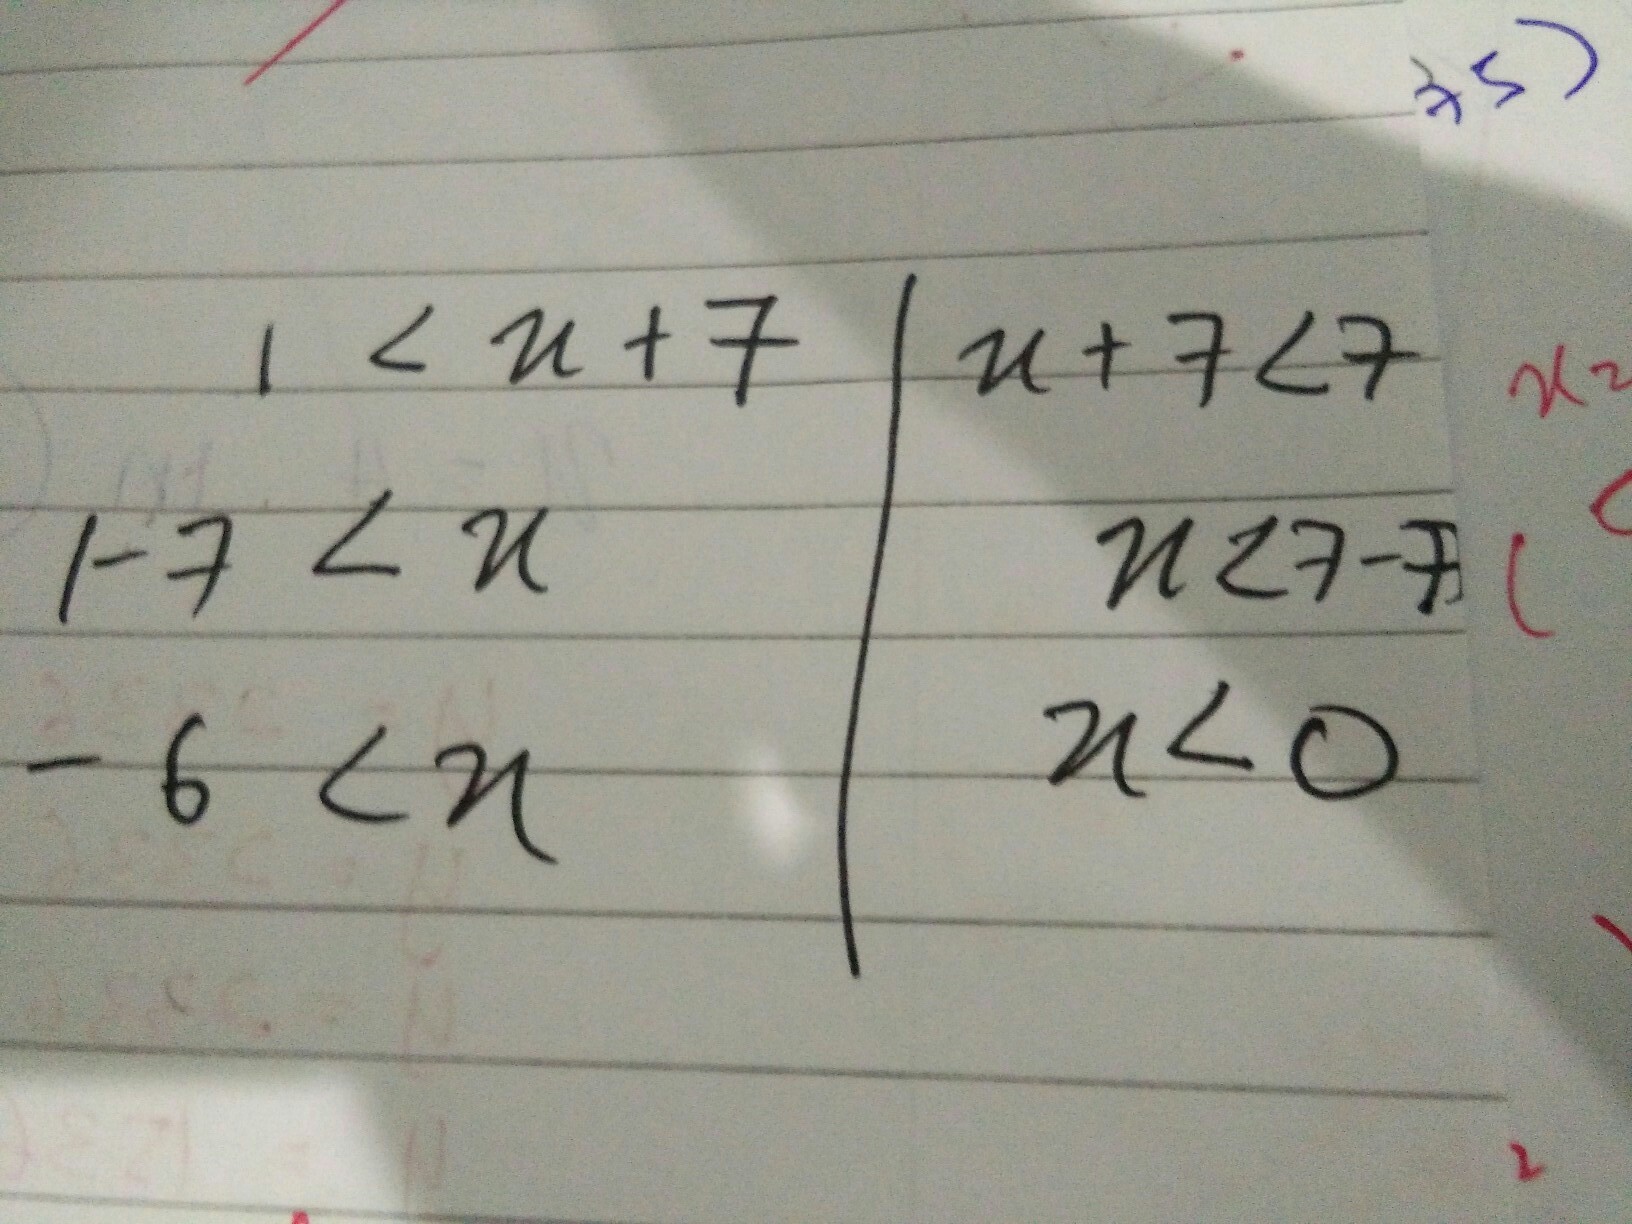 1 < x + 7 | x + 7 < 7
1 - 7 < x | x < 7 - 7
- 6 < x | x < 0